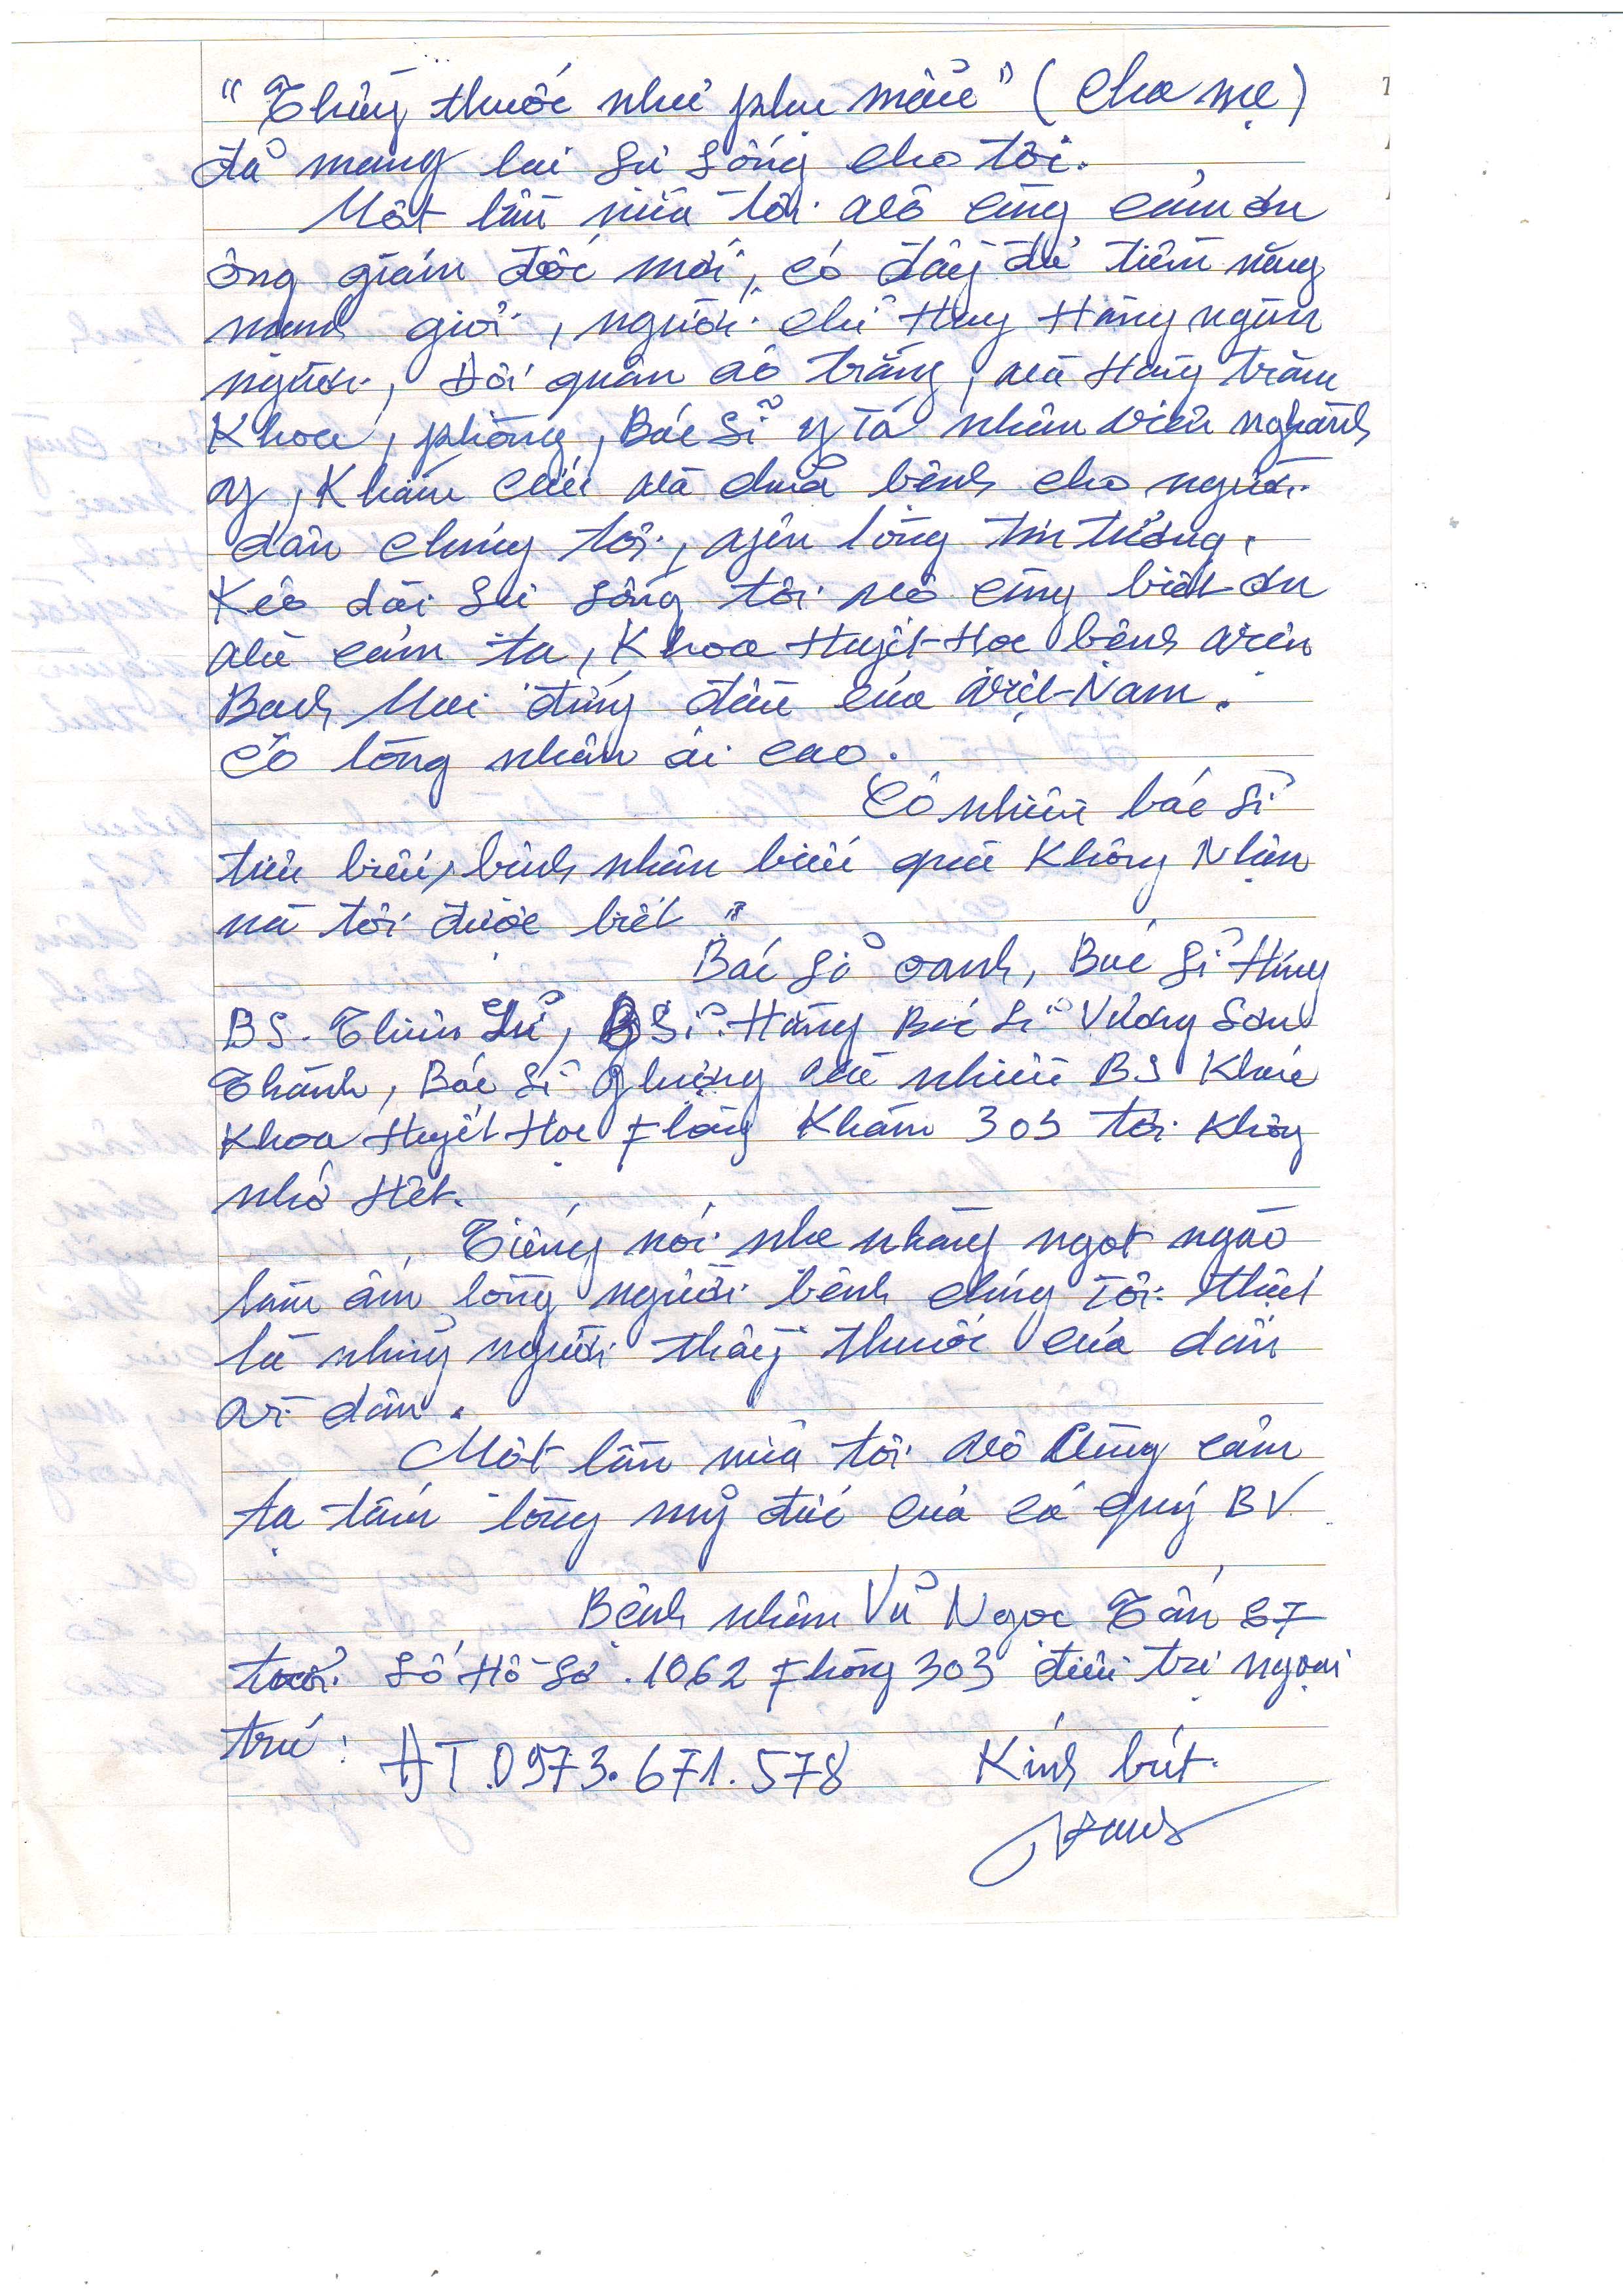 "Thầy thuốc như phụ mẫu" (cha mẹ)
đã mang lại sự sống cho tôi.
Một lần nữa tôi vô cùng cảm ơn
ông giám đốc mới, có đầy đủ tiềm năng
mạnh giỏi, người chỉ Huy Hàng ngàn
người, Đội quân áo trắng, và Hàng trăm
Khoa, phòng, Bác Sĩ y Tá nhân viên nghành
y, Khám cứu và chữa bệnh cho người
dân chúng tôi, yên lòng tin tưởng,
Kéo dài sự sống tôi vô cùng biết ơn
và cảm tạ, Khoa Huyết Học bệnh viện
Bạch Mai đứng đầu của Việt-Nam.
Có lòng nhân ái cao.
Có nhiều bác sĩ
tiêu biểu, bệnh nhân biếu quà Không Nhận
mà tôi được biết"
Bác sĩ oanh, Bác sĩ Hùng
BS. BSĩ. Hằng Bác Sĩ Vương Sơn
Thành, Bác Sĩ và nhiều BS Khác
Khoa Huyết Học Phòng Khám 303 tôi Không
nhớ Hết.
Tiếng nói nhẹ nhàng ngọt ngào
làm ấm lòng người bệnh chúng Tôi. thật
là những người thầy thuốc của dân
vì dân.
Một lần nữa tôi vô Cùng cảm
tạ tấm lòng mỹ đức của cả quý BV
Bệnh nhân Vũ Ngọc Tân 87
tuổi. Số Hồ Sơ .1062 Phòng 303 điều trị ngoại
trú: ĐT.0973.671.578 Kính bút.